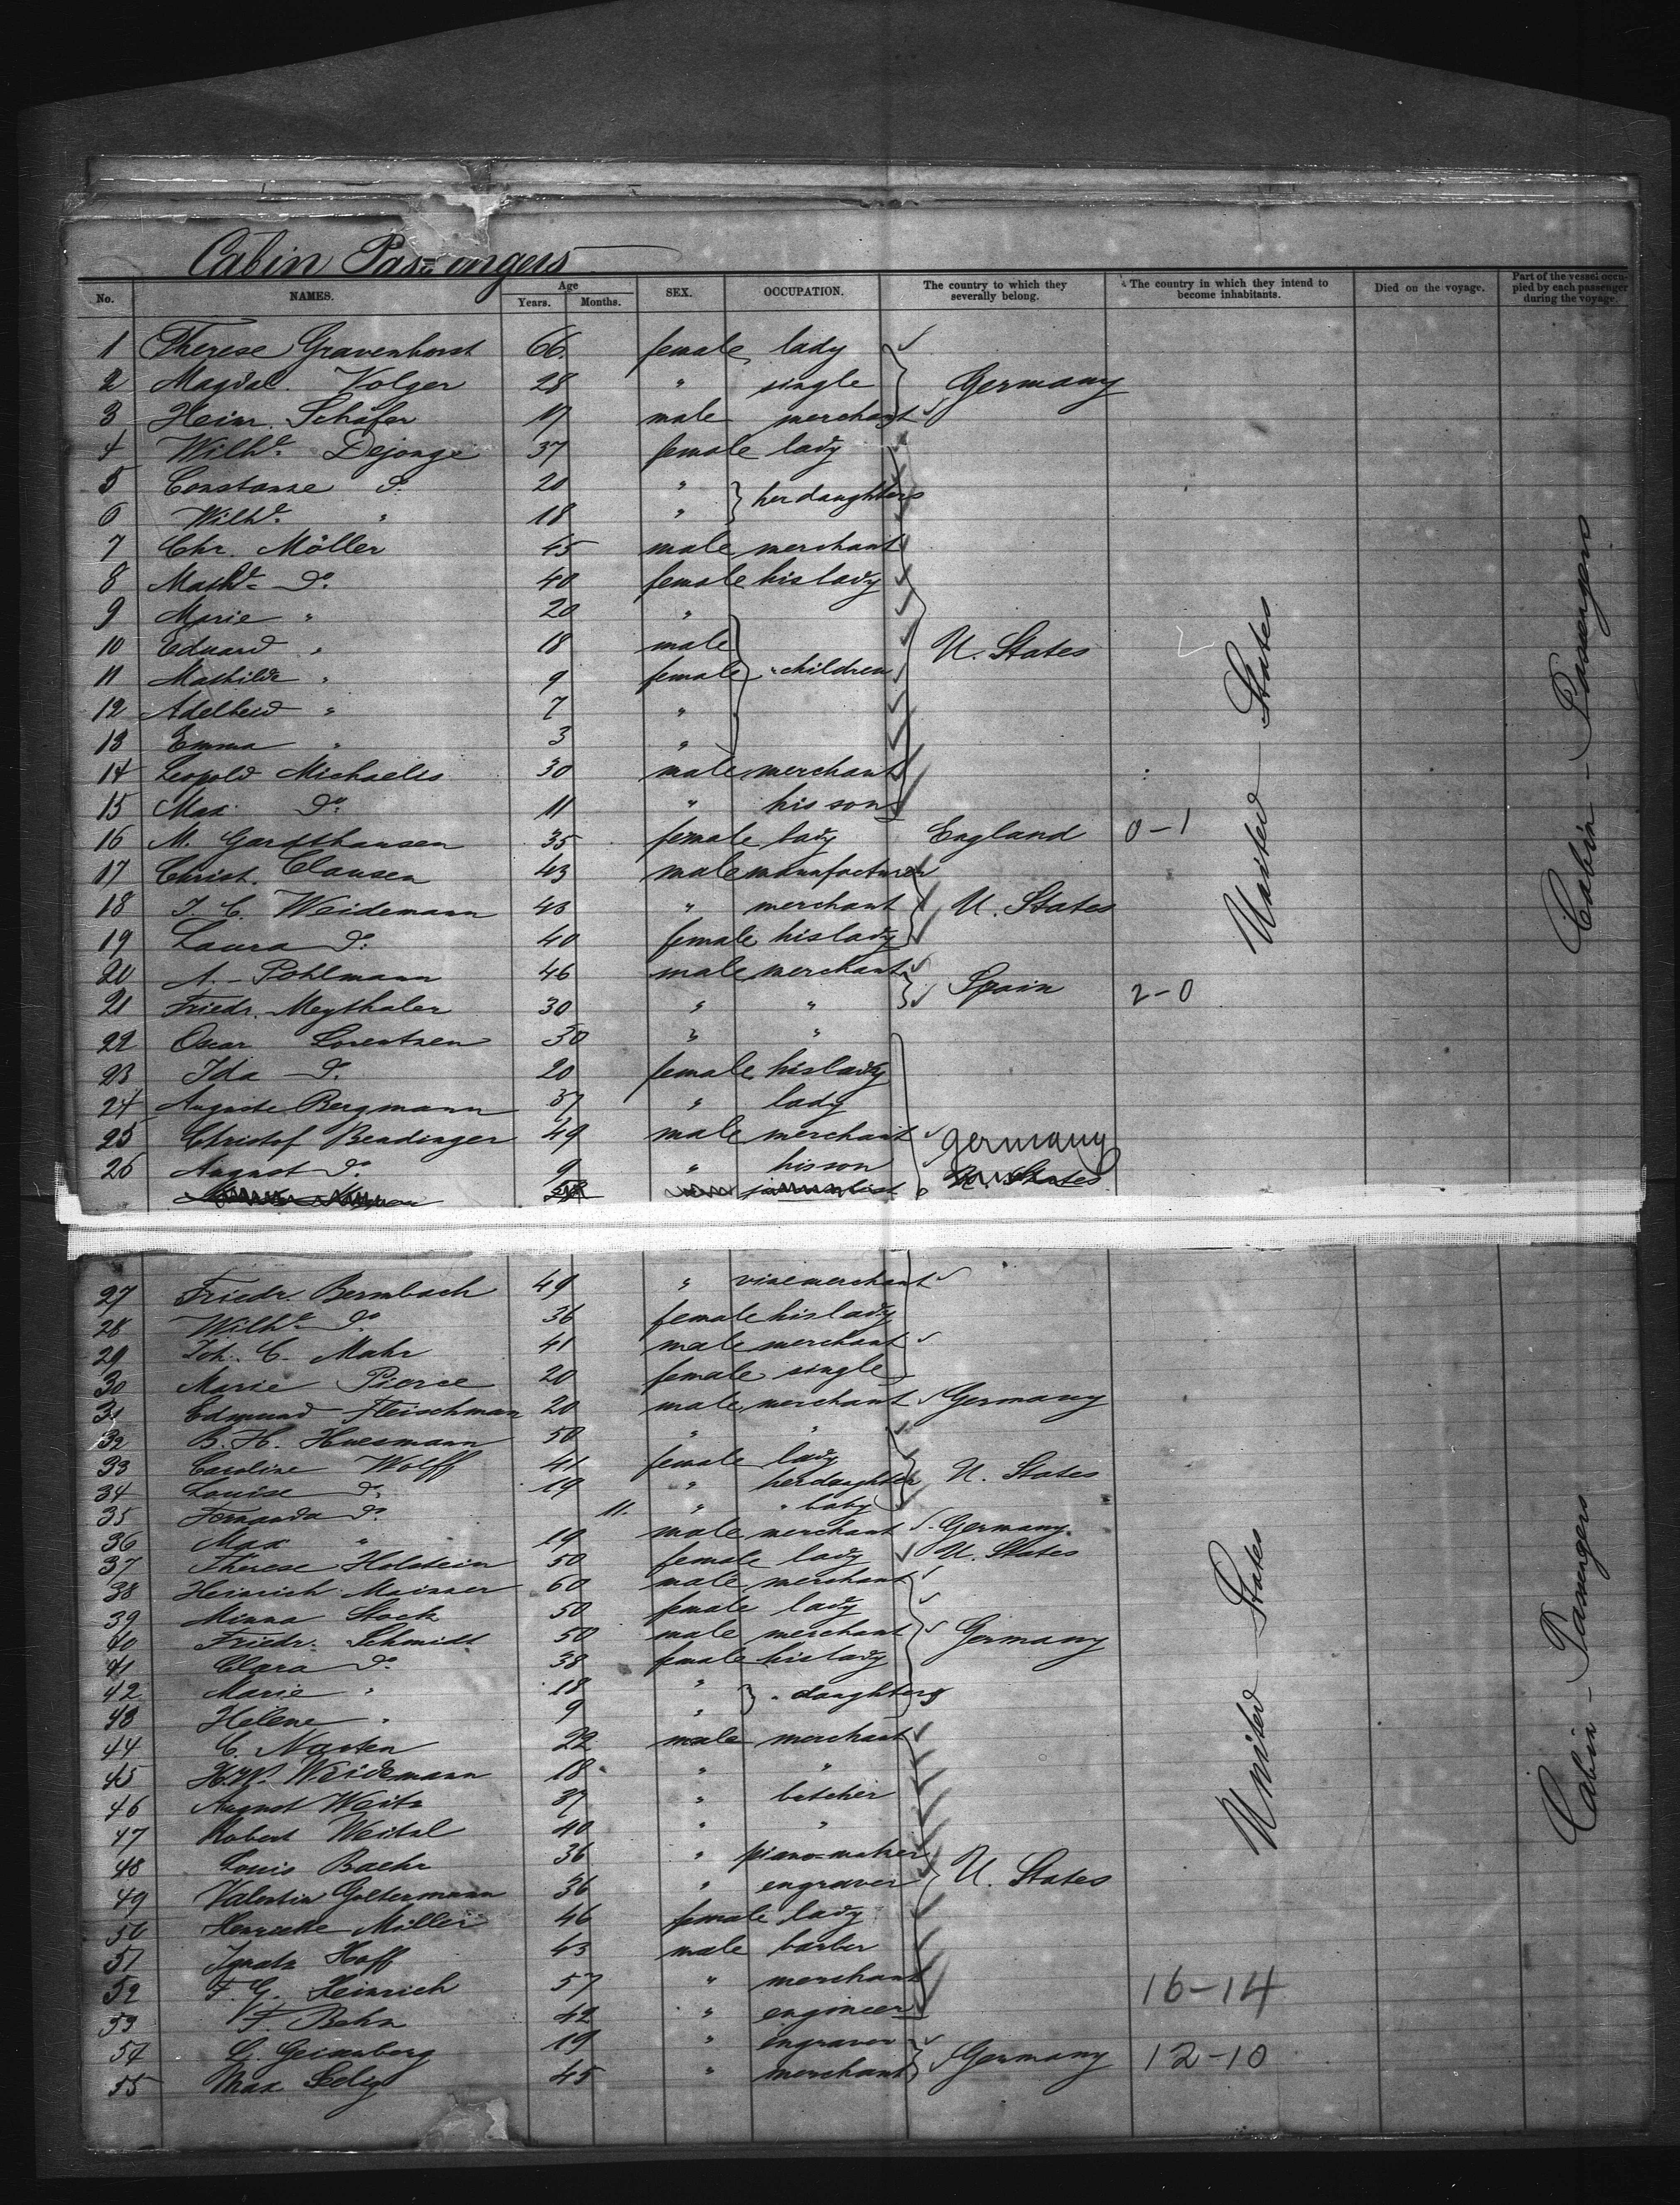 Cabin Passengers
No. NAMES. Age Years. Months. SEX. OCCUPATION. The country to which they severally belong. The country in which they intend to become inhabitants. Died on the voyage. Part of the vessel occupied by each passenger during the voyage.
1 Therese Gravenhorst 66 female lady
2 Magdal. Volger 28 " single Germany
3 Heinr. Schäfer 17 male merchant
4 Wilhe. Dejonge 37 female lady
5 Constanze do. 20 " } her daughters
6 Wilhe. " 18 "
7 Chr. Möller 45 male merchant
8 Mathe. do. 40 female his lady
9 Marie " 20 "
10 Eduard " 18 male U. States
11 Mathilde " 9 female " children
12 Adelheid " 7 "
13 Emma " 3 "
14 Leopold Michaelis 30 male merchant
15 Max do. 11 " his son
16 M. Gardthausen 35 female lady England 0-1
17 Christ. Clausen 43 male manufacturer
18 J. C. Weidemann 43 " merchant U. States
19 Laura do. 40 female his lady
20 A. Pohlmann 46 male merchant Spain 2-0
21 Friedr. Meythaler 30 " "
22 Oscar Lorentzen 30 " "
23 Ida do. 20 female his lady
24 Auguste Bergmann 37 " lady
25 Christof Bendinger 49 male merchant Germany
26 August do. 9 " his son U. States
United States
Cabin - Passengers
27 Friedr. Bermbach 49 " vinemerchant
28 Wilhe. do. 36 female his lady
29 Joh. C. Mahr 41 male merchant
30 Marie Pierce 20 female single
31 Edmund Fleischman 20 male merchant Germany
32 B. H. Huesmann 50 " "
33 Caroline Wolff 41 female lady U. States
34 Louise do. 19 " her daughter
35 Fernanda do. 11. " " baby
36 Max " 19 male merchant Germany
37 Therese Holstein 50 female lady U. States
38 Heinrich Meisner 60 male merchant
39 Minna Stock 50 female lady
40 Friedr. Schmidt 50 male merchant Germany
41 Clara do. 38 female his lady
42 Marie " 18 " } " daughters
43 Helene " 9 "
44 C. Narten 22 male merchant
45 H.W. Weidemann 18 " "
46 August Weitz 37 " butcher
47 Robert Weitzl 40 " "
48 Louis Baehr 36 " piano-maker
49 Valentin Goltermann 36 " engraver U. States
50 Henriette Miller 46 female lady
51 Ignatz Hoff 43 male barber
52 F. G. Heinrich 57 " merchant 16-14
53 F. Behn 42 " engineer
54 C. Geisenberg 19 " engraver Germany 12-10
55 Max Selig 45 " merchant
United States
Cabin - Passengers